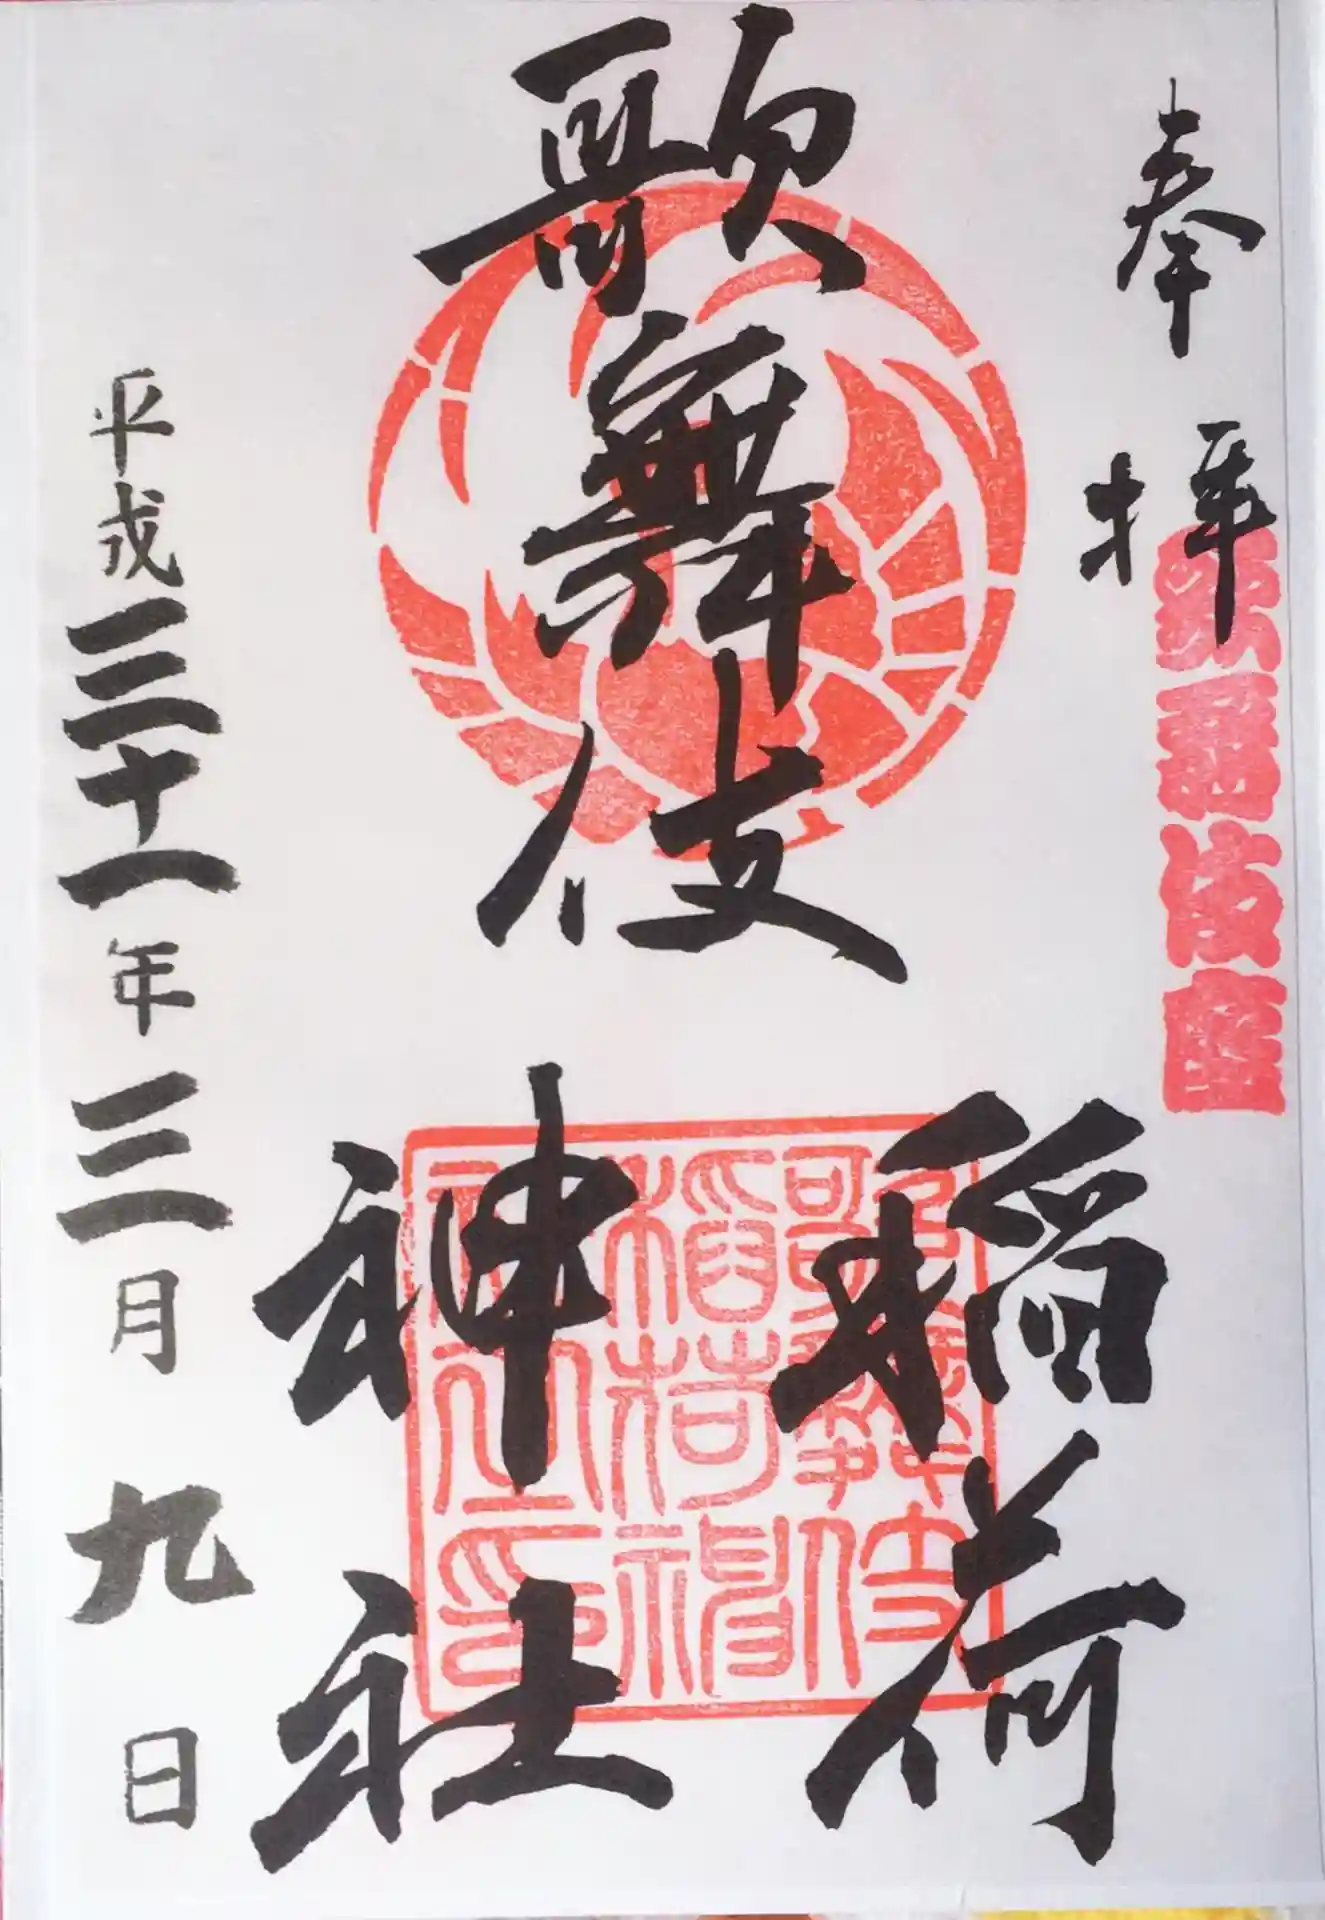 奉拝
歌舞伎座
歌舞伎
稲荷
神社
歌舞伎
稲荷神
社之印
平成三十一年三月九日